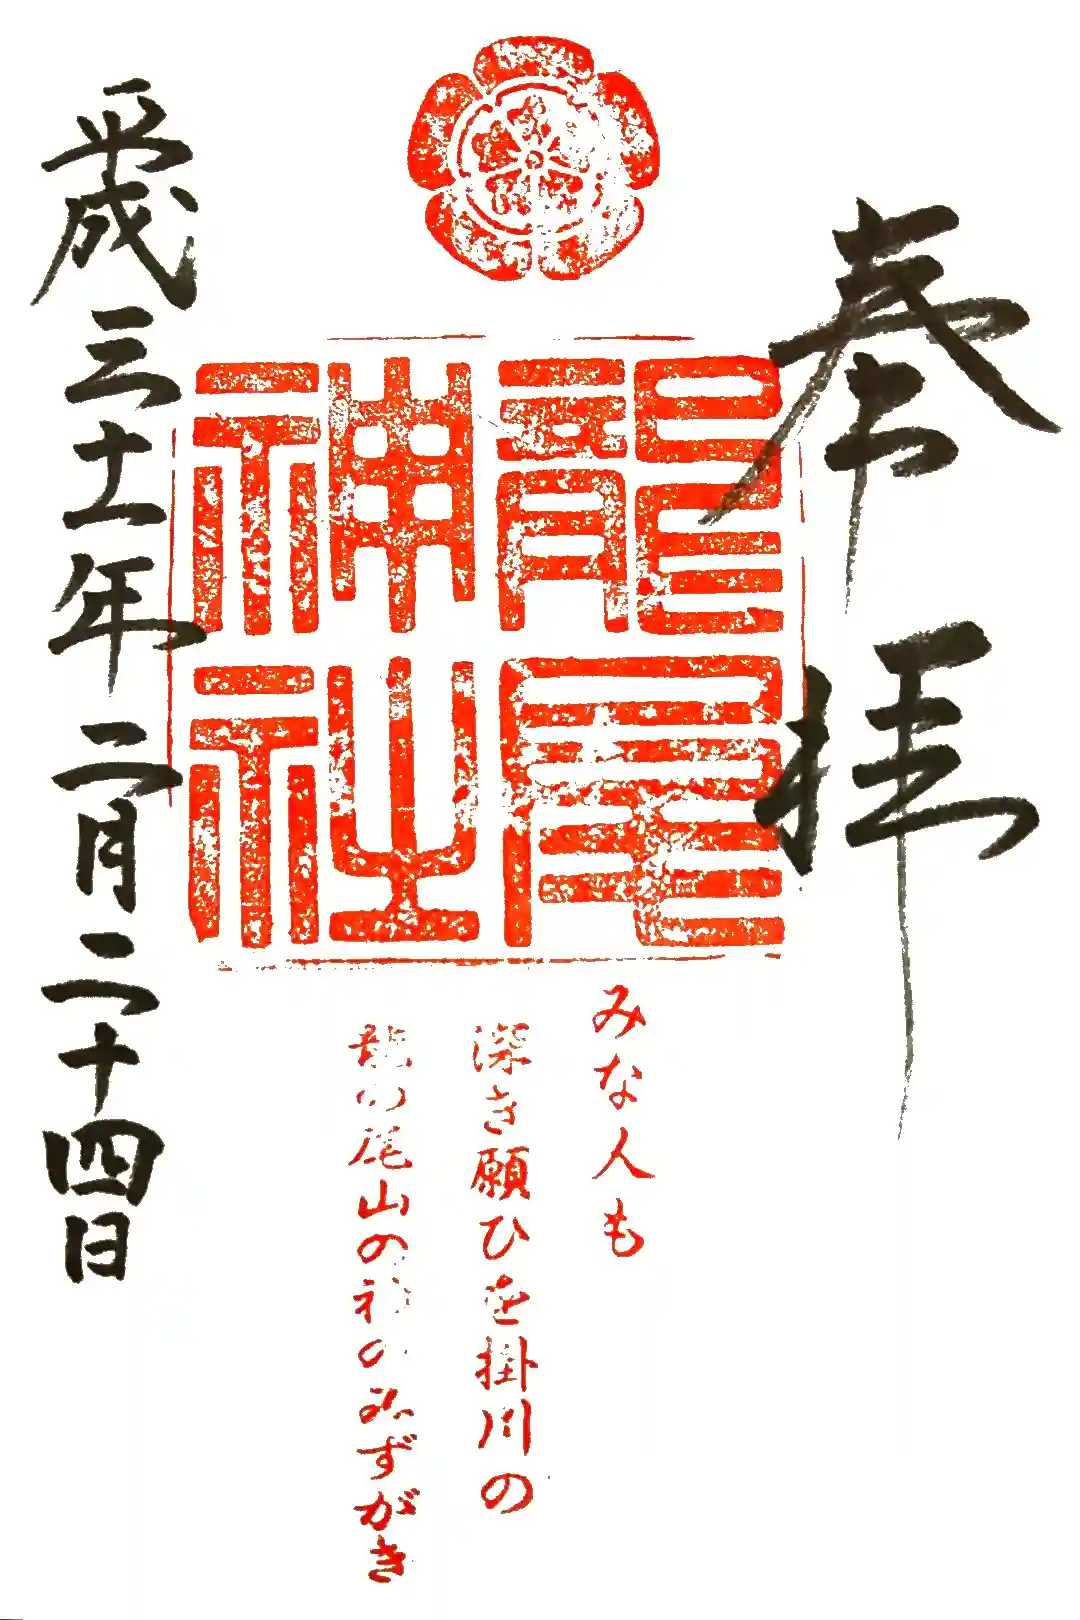 奉拝
龍尾
神社
みな人も
深き願ひを掛川の
龍の尾山の神のみずがき
平成三十一年二月二十四日